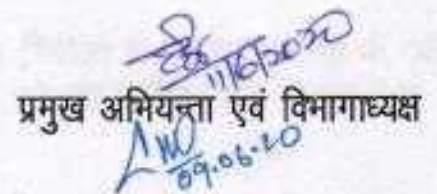 11/6/2020
प्रमुख अभियन्ता एवं विभागाध्यक्ष
09.06.20